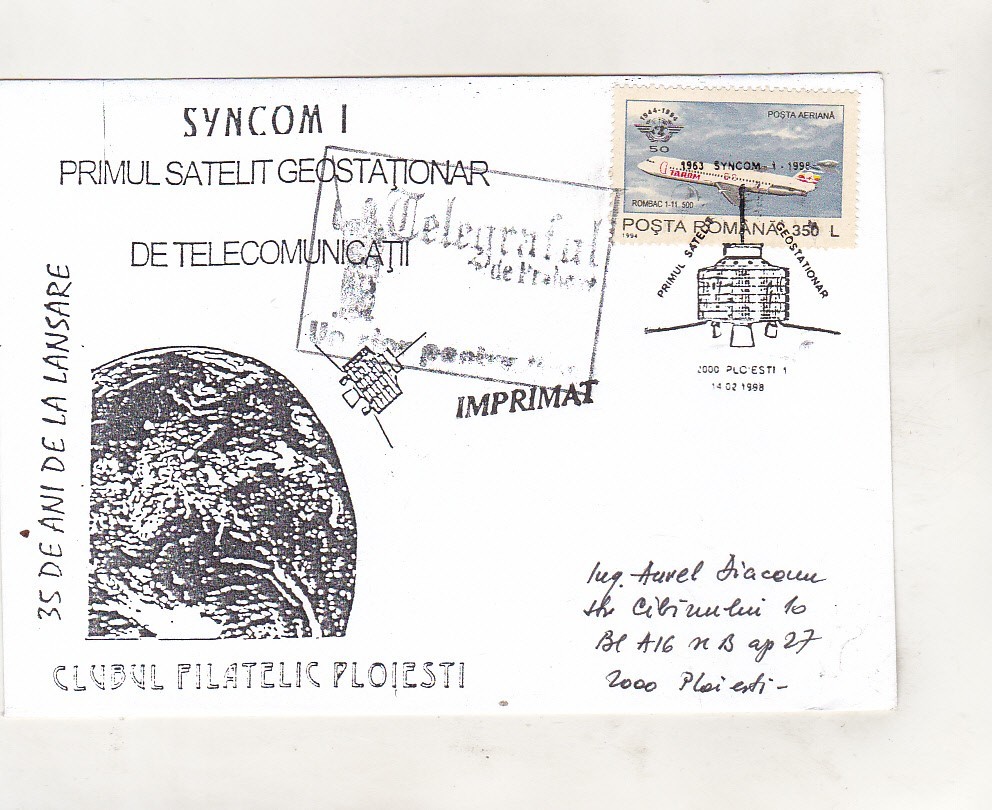 SYNCOM I
PRIMUL SATELIT GEOSTAȚIONAR
DE TELECOMUNICAȚII
35 DE ANI DE LA LANSARE
CLUBUL FILATELIC PLOIESTI
Telegraful
de Prahova
Un ziar pentru
IMPRIMAT
1944-1994
50
POȘTA AERIANĂ
1963 SYNCOM 1 - 1998
TAROM
ROMBAC 1-11. 500
POȘTA ROMÂNĂ 350 L
1994
PRIMUL SATELIT GEOSTAȚIONAR
2000 PLOIESTI 1
14.02 1998
Ing. Aurel Diaconu
str Cibinului 10
Bl A16 B ap 27
2000 Ploiesti -